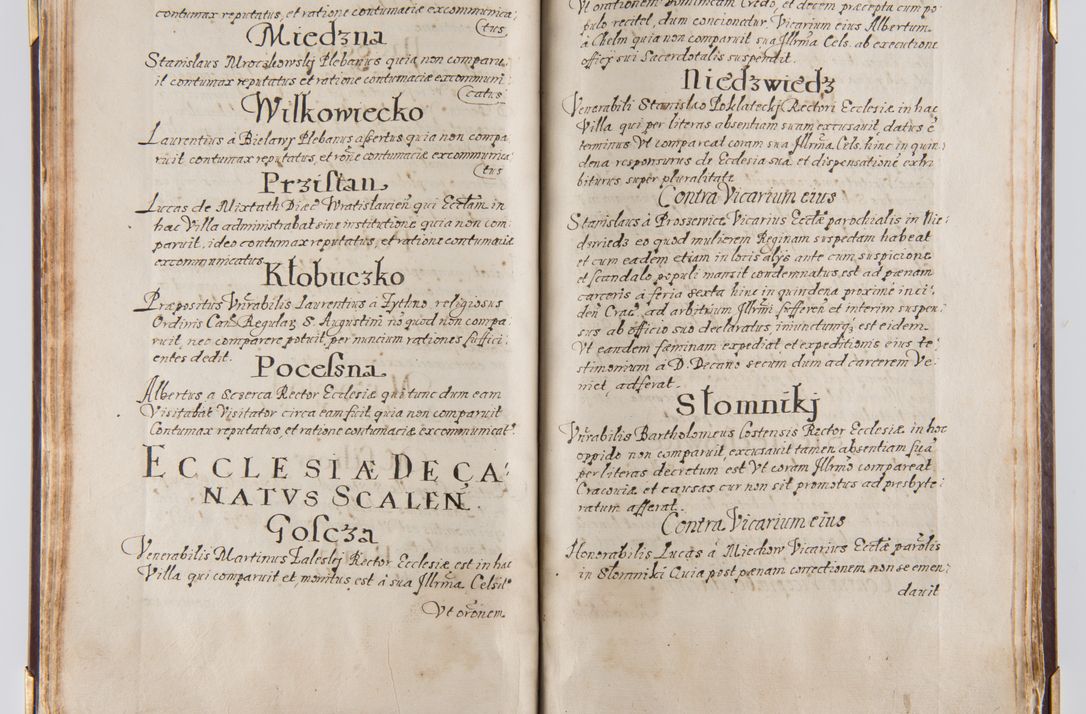 contumax reputatus, et ratione contumaciæ excommunica:
ctus
Miedzna
Stanislaus Mroczkowskj Plebanus quia non comparu:
it contumax reputatus et ratione contumaciæ excommuni
catus
Wilkowiecko
Laurentius à Bielawy Plebanus assertus quia non compa
ruit contumax reputatus, et roñe contumaciæ excommunica
tus
Przistan
Lucas de Mixtath Diæc Wratislavien̄ qui Ecclam in
hac Villa administrabat sine institutione quia non com
paruit, ideo contumax reputatus, et ratione contumaciæ
excommunicatus
Kłobuczko
Præpositus Vnrabilis Laurentius à Zythno religiosus
Ordinis Can Regular S. Augustini no quod non compa:
ruit, nec comparere potuit, per nuncium rationes suffici:
entes dedit.
Pocessna
Albertus a Scserca Rector Ecclesiæ qui tunc dum eam
Visitabat Visitator circa eam fuit quia non comparuit
Contumax reputatus, et ratione contumaciæ excommunicat9
ECCLESIÆ DECA:
NATVS SCALEN.
Goscza
Venerabilis Martinus Zaleskj Rector Ecclesiæ est in hac
Villa qui comparuit et monitus est à sua Illrma Celsit
Vt oronem
Vt orationem Dominicam Credo, et decem præcepta cum po:
pulo recitet, dum concionatur Vicarium eius Albertum
à Chelm quia non comparuit sua Illrma Cels. ab executione
officy sui Sacerdotalis suspendit.
Niedzwiedz
Venerabili Stanislao Poklateckj Rectori Ecclesiæ in hac
Villa qui per literas absentiam suam excusauit, datus e
terminus Vt compareat coram sua Illrma Cels. hinc in quin
dena responsurus de Ecclesia sua et dispensatione exhi
biturus super pluralitate
Contra Vicarium eius
Stanislaus à Prossevice Vicarius Ecclæ parochialis in Nie
dzwiedz eo quod mulierem Reginam suspectam habeat
et cum eadem etiam in locis alys ante cum suspicione
et scandalo populi mansit condemnatus est ad pœnam
carceris à feria sexta hinc in quindena proxime inci:
den Crac, ad arbitrium Illrmi sufferen et interim suspen:
sus ab officio suo declaratus, iniunctumq est eidem
Vt eandem fæminam expediat et expeditionis eius te:
stimonium à D. Decano secum dum ad carcerem Ve:
niet, adferat.
Słomnikj
Vnrabilis Bartholomeus Costensis Rector Ecclesiæ in hoc
oppido non comparuit, excusauit tamen absentiam suā
per literas decretum est Vt coram Illrmo compareat
Cracouiæ et causas cur non sit promotus ad presbyte:
ratum afferat.
Contra Vicarium eius
Honorabilis Lucas à Miechow Vicarius Ecclæ parolis
in Słomniki Quia post pœnam correctionem non se emen:
dauit